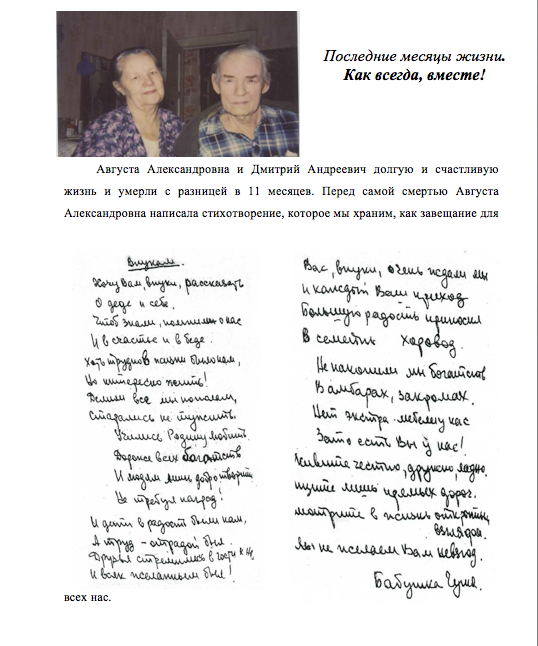 Последние месяцы жизни.
Как всегда, вместе!
Августа Александровна и Дмитрий Андреевич долгую и счастливую
жизнь и умерли с разницей в 11 месяцев. Перед самой смертью Августа
Александровна написала стихотворение, которое мы храним, как завещание для
Внукам.
Хочу Вам, внуки, рассказать
О деде и себе.
Чтоб знали, помнили о нас
И в счастье и в беде.
Хоть трудно в жизни было нам,
Но интересно жить!
Делили все мы пополам,
Старались не тужить.
Учились Родину любить
Дороже всех богатств
И людям лишь добро творить
Не требуя наград!
И дети в радость были нам,
А труд - отрадой был.
Друзья стремились в гости к нам
И всяк желанным был!
Вас, внуки, очень ждали мы
и каждый Ваш приход
Большую радость приносил
В семейный хоровод.
Не накопили мы богатств
В амбарах, закромах.
Нет экстра-мебели у нас
Зато есть Вы у нас!
живите честно, дружно, ладно.
ищите лишь прямых дорог.
мотрите в жизнь открытым
взглядом.
Мы не желаем Вам невзгод.
Бабушка Гутя.
всех нас.